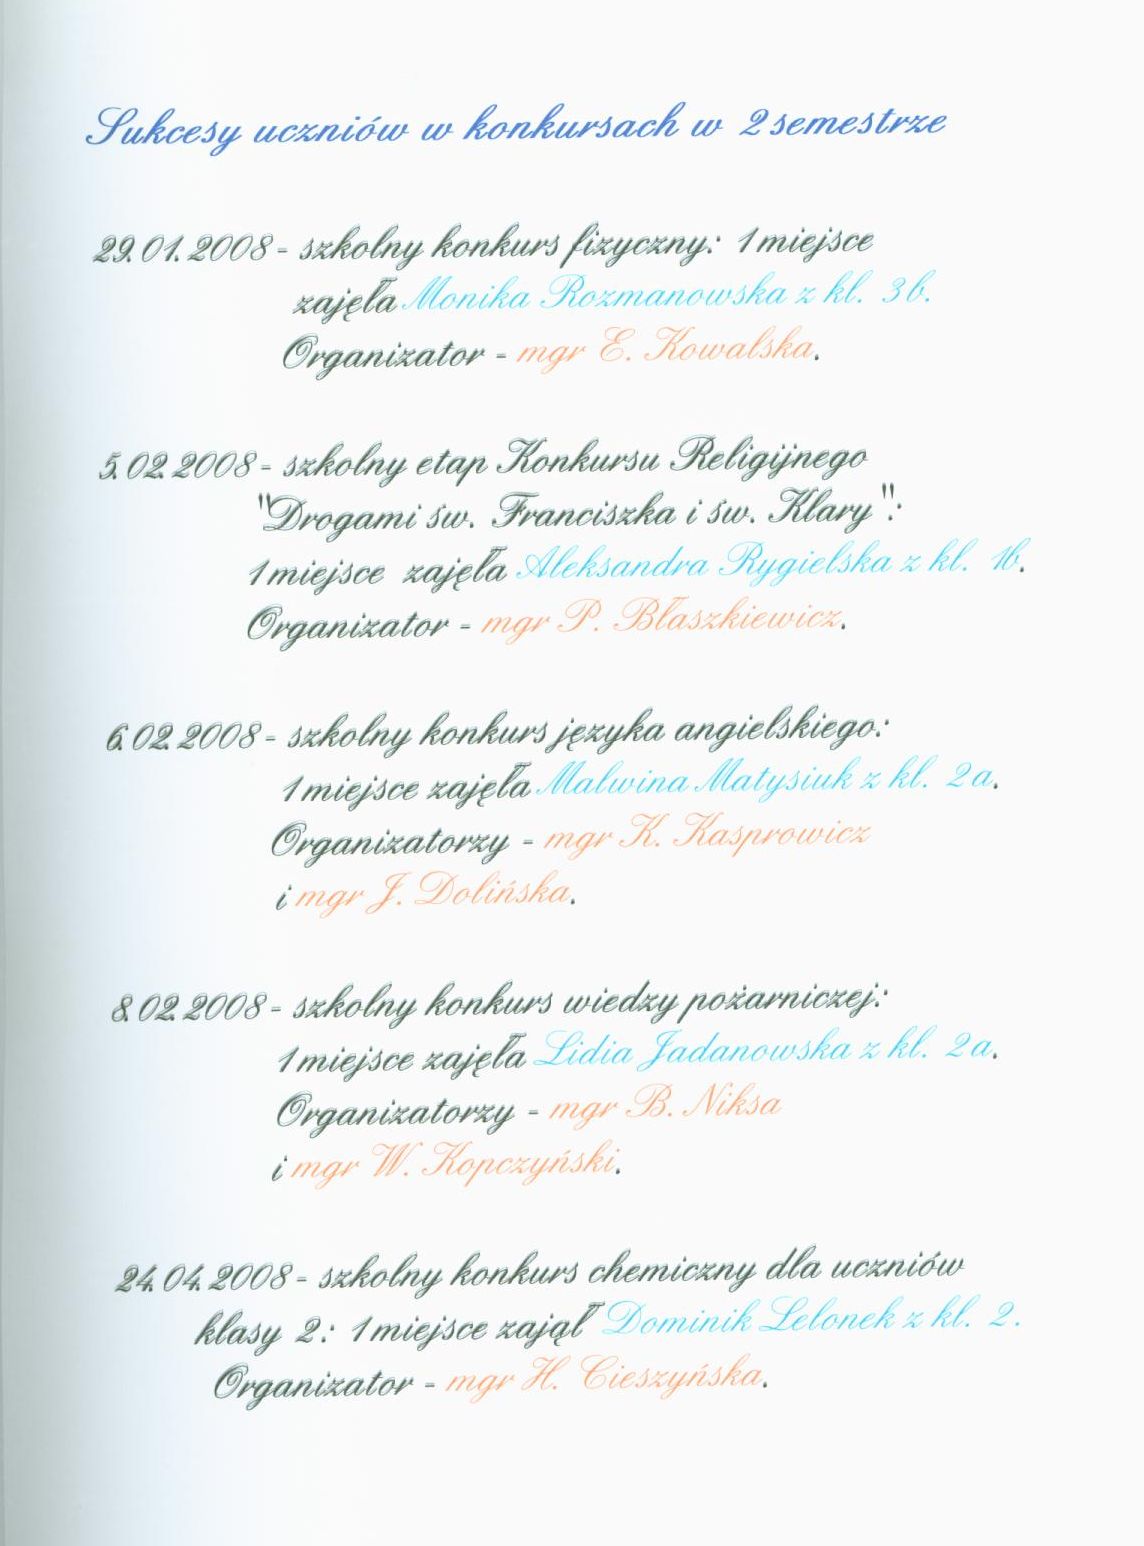 Sukcesy uczniów w konkursach w 2 semestrze
29.01.2008 - szkolny konkurs fizyczny: 1 miejsce
zajęła Monika Rozmanowska z kl. 3b.
Organizator - mgr E. Kowalska.
5.02.2008 - szkolny etap Konkursu Religijnego
"Drogami św. Franciszka i św. Klary":
1 miejsce zajęła Aleksandra Rygielska z kl. 1b.
Organizator - mgr P. Błaszkiewicz.
6.02.2008 - szkolny konkurs języka angielskiego:
1 miejsce zajęła Malwina Matysiuk z kl. 2a.
Organizatorzy - mgr K. Kasprowicz
i mgr J. Dolińska.
8.02.2008 - szkolny konkurs wiedzy pożarniczej:
1 miejsce zajęła Lidia Jadanowska z kl. 2a.
Organizatorzy - mgr B. Niksa
i mgr W. Kopczyński.
24.04.2008 - szkolny konkurs chemiczny dla uczniów
klasy 2.: 1 miejsce zajął Dominik Lelonek z kl. 2.
Organizator - mgr H. Cieszyńska.